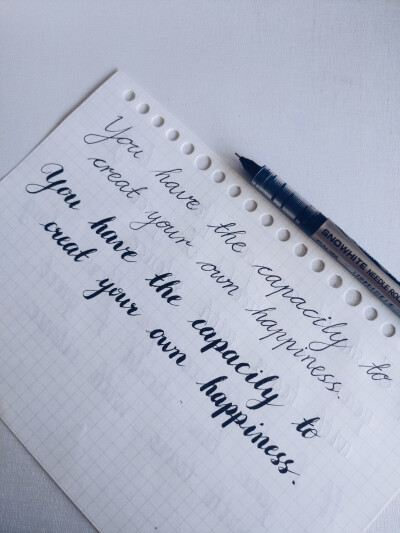 You have the capacily to
creat your own happiness.
You have the capacily to
creat your own happiness.
SNOWHITE NEEDLE